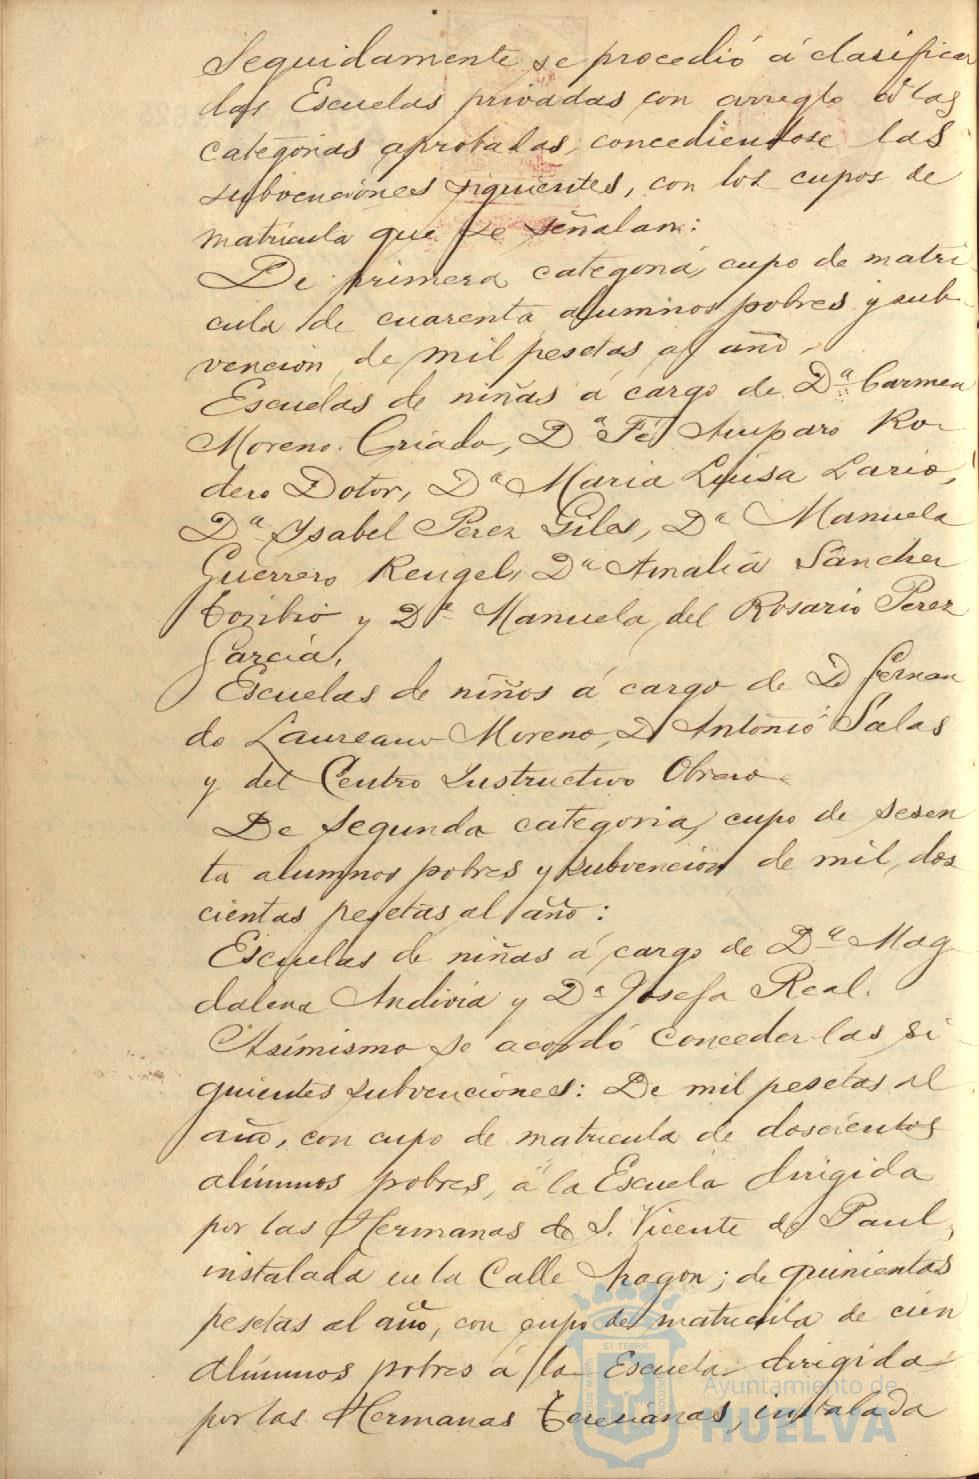 Seguidamente se procedió á clasificar
las Escuelas privadas con arreglo á las
categorias aprobadas, concediendose las
subvenciónes siguientes, con los cupos de
matricula que se señalan:
De primera categoria, cupo de matri
cula de cuarenta alumnos pobres y sub-
vención de mil pesetas al año,
Escuelas de niñas á cargo de Dª Carmen
Moreno Criado, Dª Fé Amparo Ro-
dero Dotor, Dª Maria Luisa Lario,
Dª Ysabel Perez Giles, Dª Manuela
Guerrero Rengel, Dª Amalia Sánchez
Toribio y Dª Manuela del Rosario Perez
Garcia.
Escuelas de niños á cargo de D Fernan
do Laureano Moreno, D Antonio Salas
y del Centro Instructivo Obrero
De segunda categoria, cupo de sesen
ta alumnos pobres y subvencion de mil dos
cientas pesetas al año:
Escuelas de niñas á cargo de Dª Mag-
dalena Andivia y Dª Josefa Real.
Asímismo se acordó conceder las si
guientes subvenciónes: De mil pesetas al
año, con cupo de matricula de doscientos
alumnos pobres, á la Escuela dirigida
por las Hermanas de S. Vicente de Paul,
instalada en la Calle Aragon; de quinientas
pesetas al año, con cupo de matricula de cien
alumnos pobres á la Escuela dirigida
por las Hermanas Teresianas, instalada
Ayuntamiento de
HUELVA